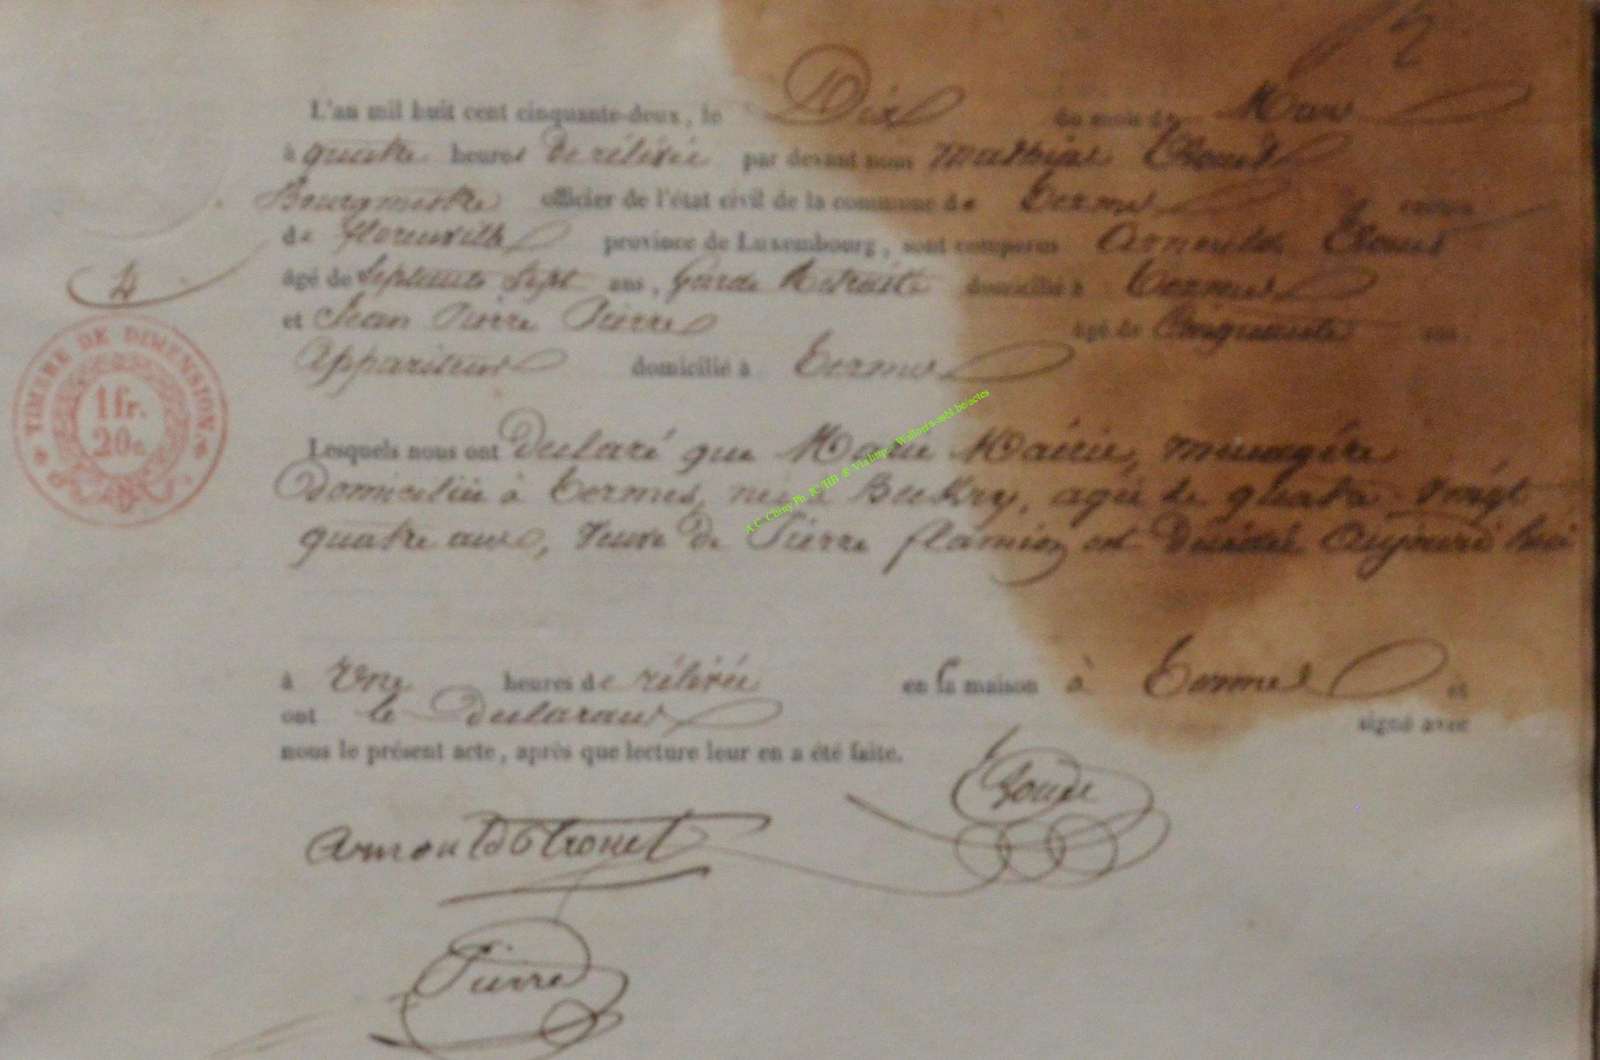 L'an mil huit cent cinquante-deux, le Dix du mois de Mars
à quatre heures de rélévée par devant nous Mathias
Bourgmestre officier de l'état civil de la commune de Termes canton
de florenville province de Luxembourg, sont comparus Arnould
âgé de Septante Sept ans, Garde Retraité domicilié à Termes
et Jean Pierre Pierre âgé de Cinquante ans
Appariteur domicilié à Termes
Lesquels nous ont Déclaré que Marie, ménagère
Domiciliée à Termes, née à, agée de quatre Vingt
quatre ans, Veuve de Pierre est Décédée Aujourd'hui
à Une heures de rélévée en sa maison à Termes et
ont le Déclarans signé avec
nous le présent acte, après que lecture leur en a été faite.
Pierre
4
TIMBRE DE DIMENSION.
1 fr.
20c.